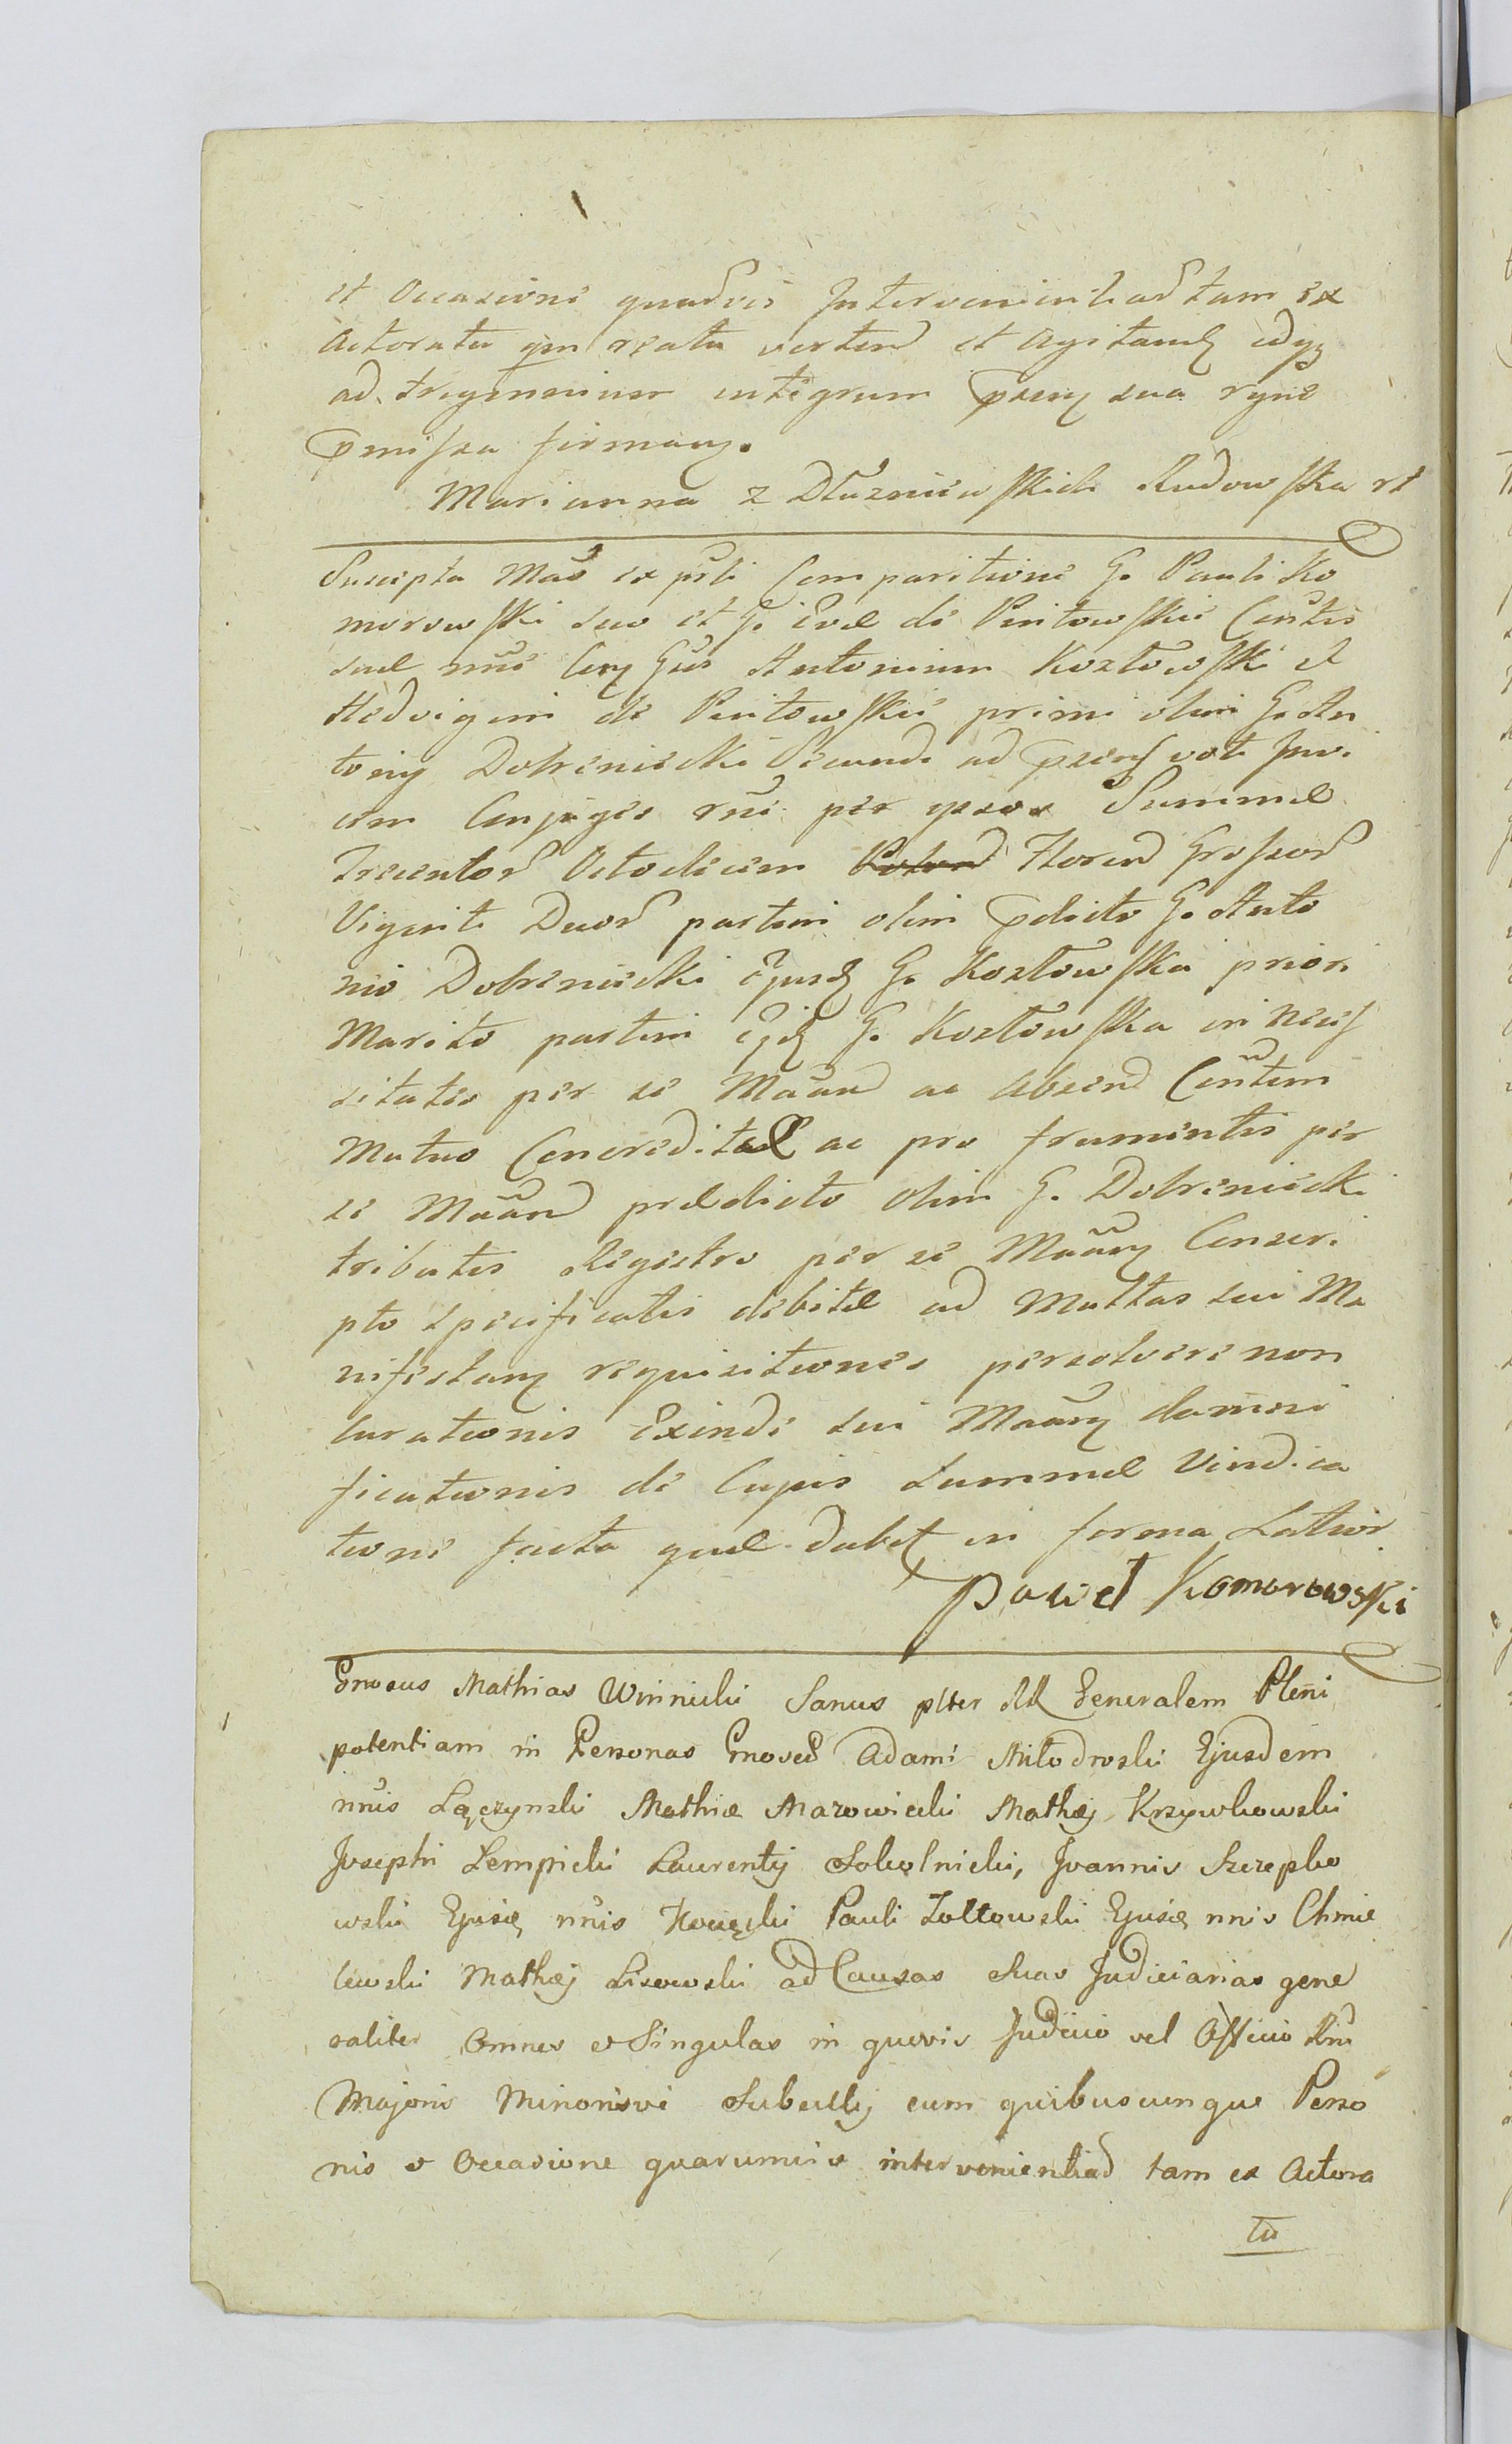 et Occasione quadvis Intervenientiad tam ex
Actoratu qm reatu verten et Agitandȝ idqȝ
ad trigennium integrum pseny sua rgne
pmissa firmany.
Marianna z Dłuzniewskich Rudowska rt
Suscepta Mao ex prti Comparitione G. Pauli Ko
morowski suo et G. Evæ de Pentowskie Contis
suæ nnoe Cony Gus Antonium Kozłowski et
Hedvigem de Pentowskie primi olim G. An
tonij Dobrzeniecki Secundi ad pseny voti Invi
cem Conjuges rne per ipsos Summæ
Trecentor Octodecim Floren Grossor
Viginti Duor partim olim pdicto G. Anto
nio Dobrzeniecki Ejusdȝ G. Kozłowska priori
Marito partim Ejdȝ G. Kozłowska in Neces
sitates per se Maan ac absen Contem
Mutuo Concreditæ ac pro frumentis per
se Maan prædicto olim G. Dobrzeniecki
tributis Regestro per se Maany Conscri
pto specificatis debitæ ad Multas sui Ma
nifestany requisitiones persolvere non
curationis Exinde sui Maany damni
ficationis de Cujus Summæ Vindica
tione facta quæ dabet in forma Latior
Paweł Komorowski
Gnosus Mathias Winnicki Sanus plter RR Generalem Pleni
potentiam in Personas Gnosed Adami Miłodroski Ejusdem
nnis Łączynski Mathiæ Mazowiecki Mathæj Krzywkowski
Josephi Lempicki Laurentij Sokolnicki, Joannis Szczepko
wski Ejusdȝ nnis Nowęcki Pauli Zołtowski Ejusdȝ nnis Chmie
lewski Mathæj Lisowski ad Causas Suas Judiciarias gene
raliter Omnes et Singulas in quovis Judicio vel Officio Rni
Majoris Minorisve Subsellij cum quibuscunque Perso
nis et Occasione quarumvis intervenientiad tam ex Actora
tu